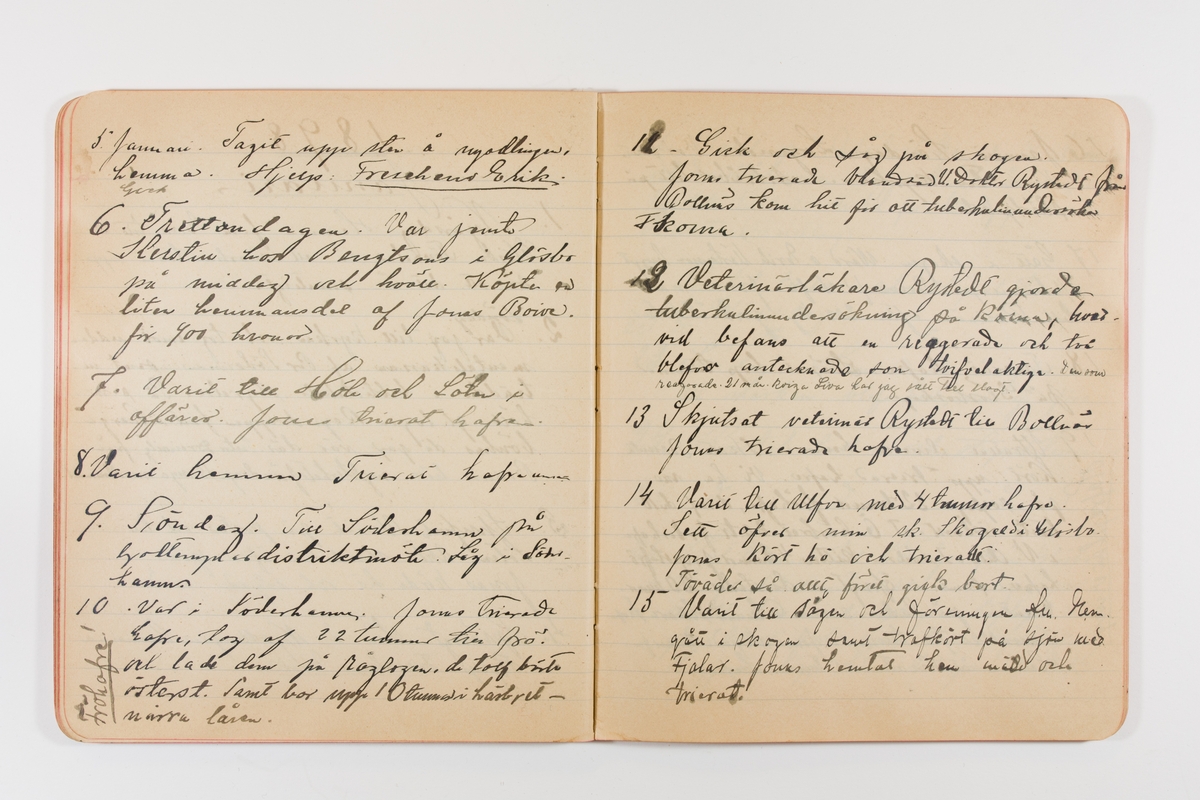 5. Januari. Tagit upp sten å nyodlingen,
hemma. Hjelp: Freschens Erik.
Gick
6. Trettondagen. Var jemte
Kerstin hos Bengtsons i Glösbo
på middag och kväll. Köpte en
liten hemmansdel af Jonas Boive.
för 900 kronor.
7. Varit till Hole och Löten i
affärer. Jonas trierat hafre.
8. Varit hemma Trierat hafre
9. Söndag. Till Söderhamn på
godtemplardistriktmöte. Låg i Söder-
hamn.
10. Var i Söderhamn. Jonas trierade
hafre, tog af 22 tunnor till frö.
och lade dem på Råglogen, de tolf
österst. Samt bar upp 10 tunnor i härbret
norra låren.
Fröhafre!
11 - Gick och såg på skogen.
Jonas trierade blandsäd. Doktor Rystedt från
Bollnäs kom hit för att tuberkulinundersöka
korna.
12 Veterinärläkare Rystedt gjorde
tuberkulinundersökning på korna, hvar-
vid befans att en reagerade och två
blefvo antecknade som tvifvelaktiga. Den som
reagerade
13 Skjutsat veterinär Rystedt till Bollnäs
Jonas trierade hafre.
14 Varit till Ulfve med 4 tunnor hafre.
Sett öfver min sk. Skoged i Glösbo.
Jonas kört hö och trieratt.
Töväder så att föret gick bort.
15 Varit till sågen och föreningen fm. Hem.
gått i skogen samt travkört på sjön med
Fjalar. Jonas hemtat hem och
trierat.